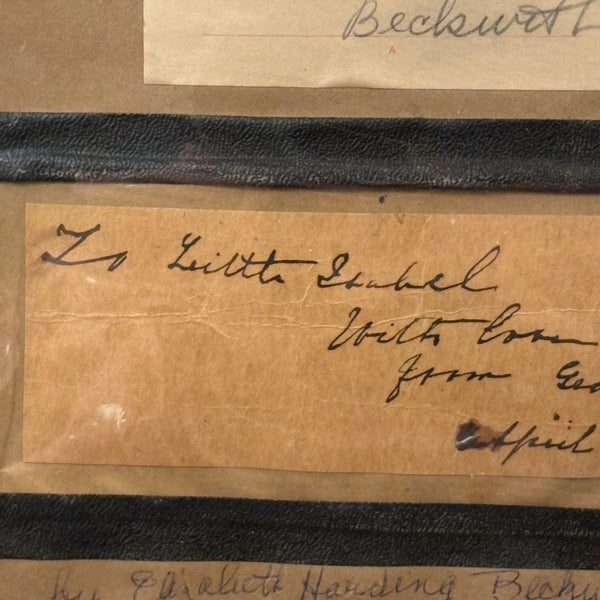 Beckwith
A
To Little Isabel
With Love
from Geo
April
by Elizabeth Harding Beckw